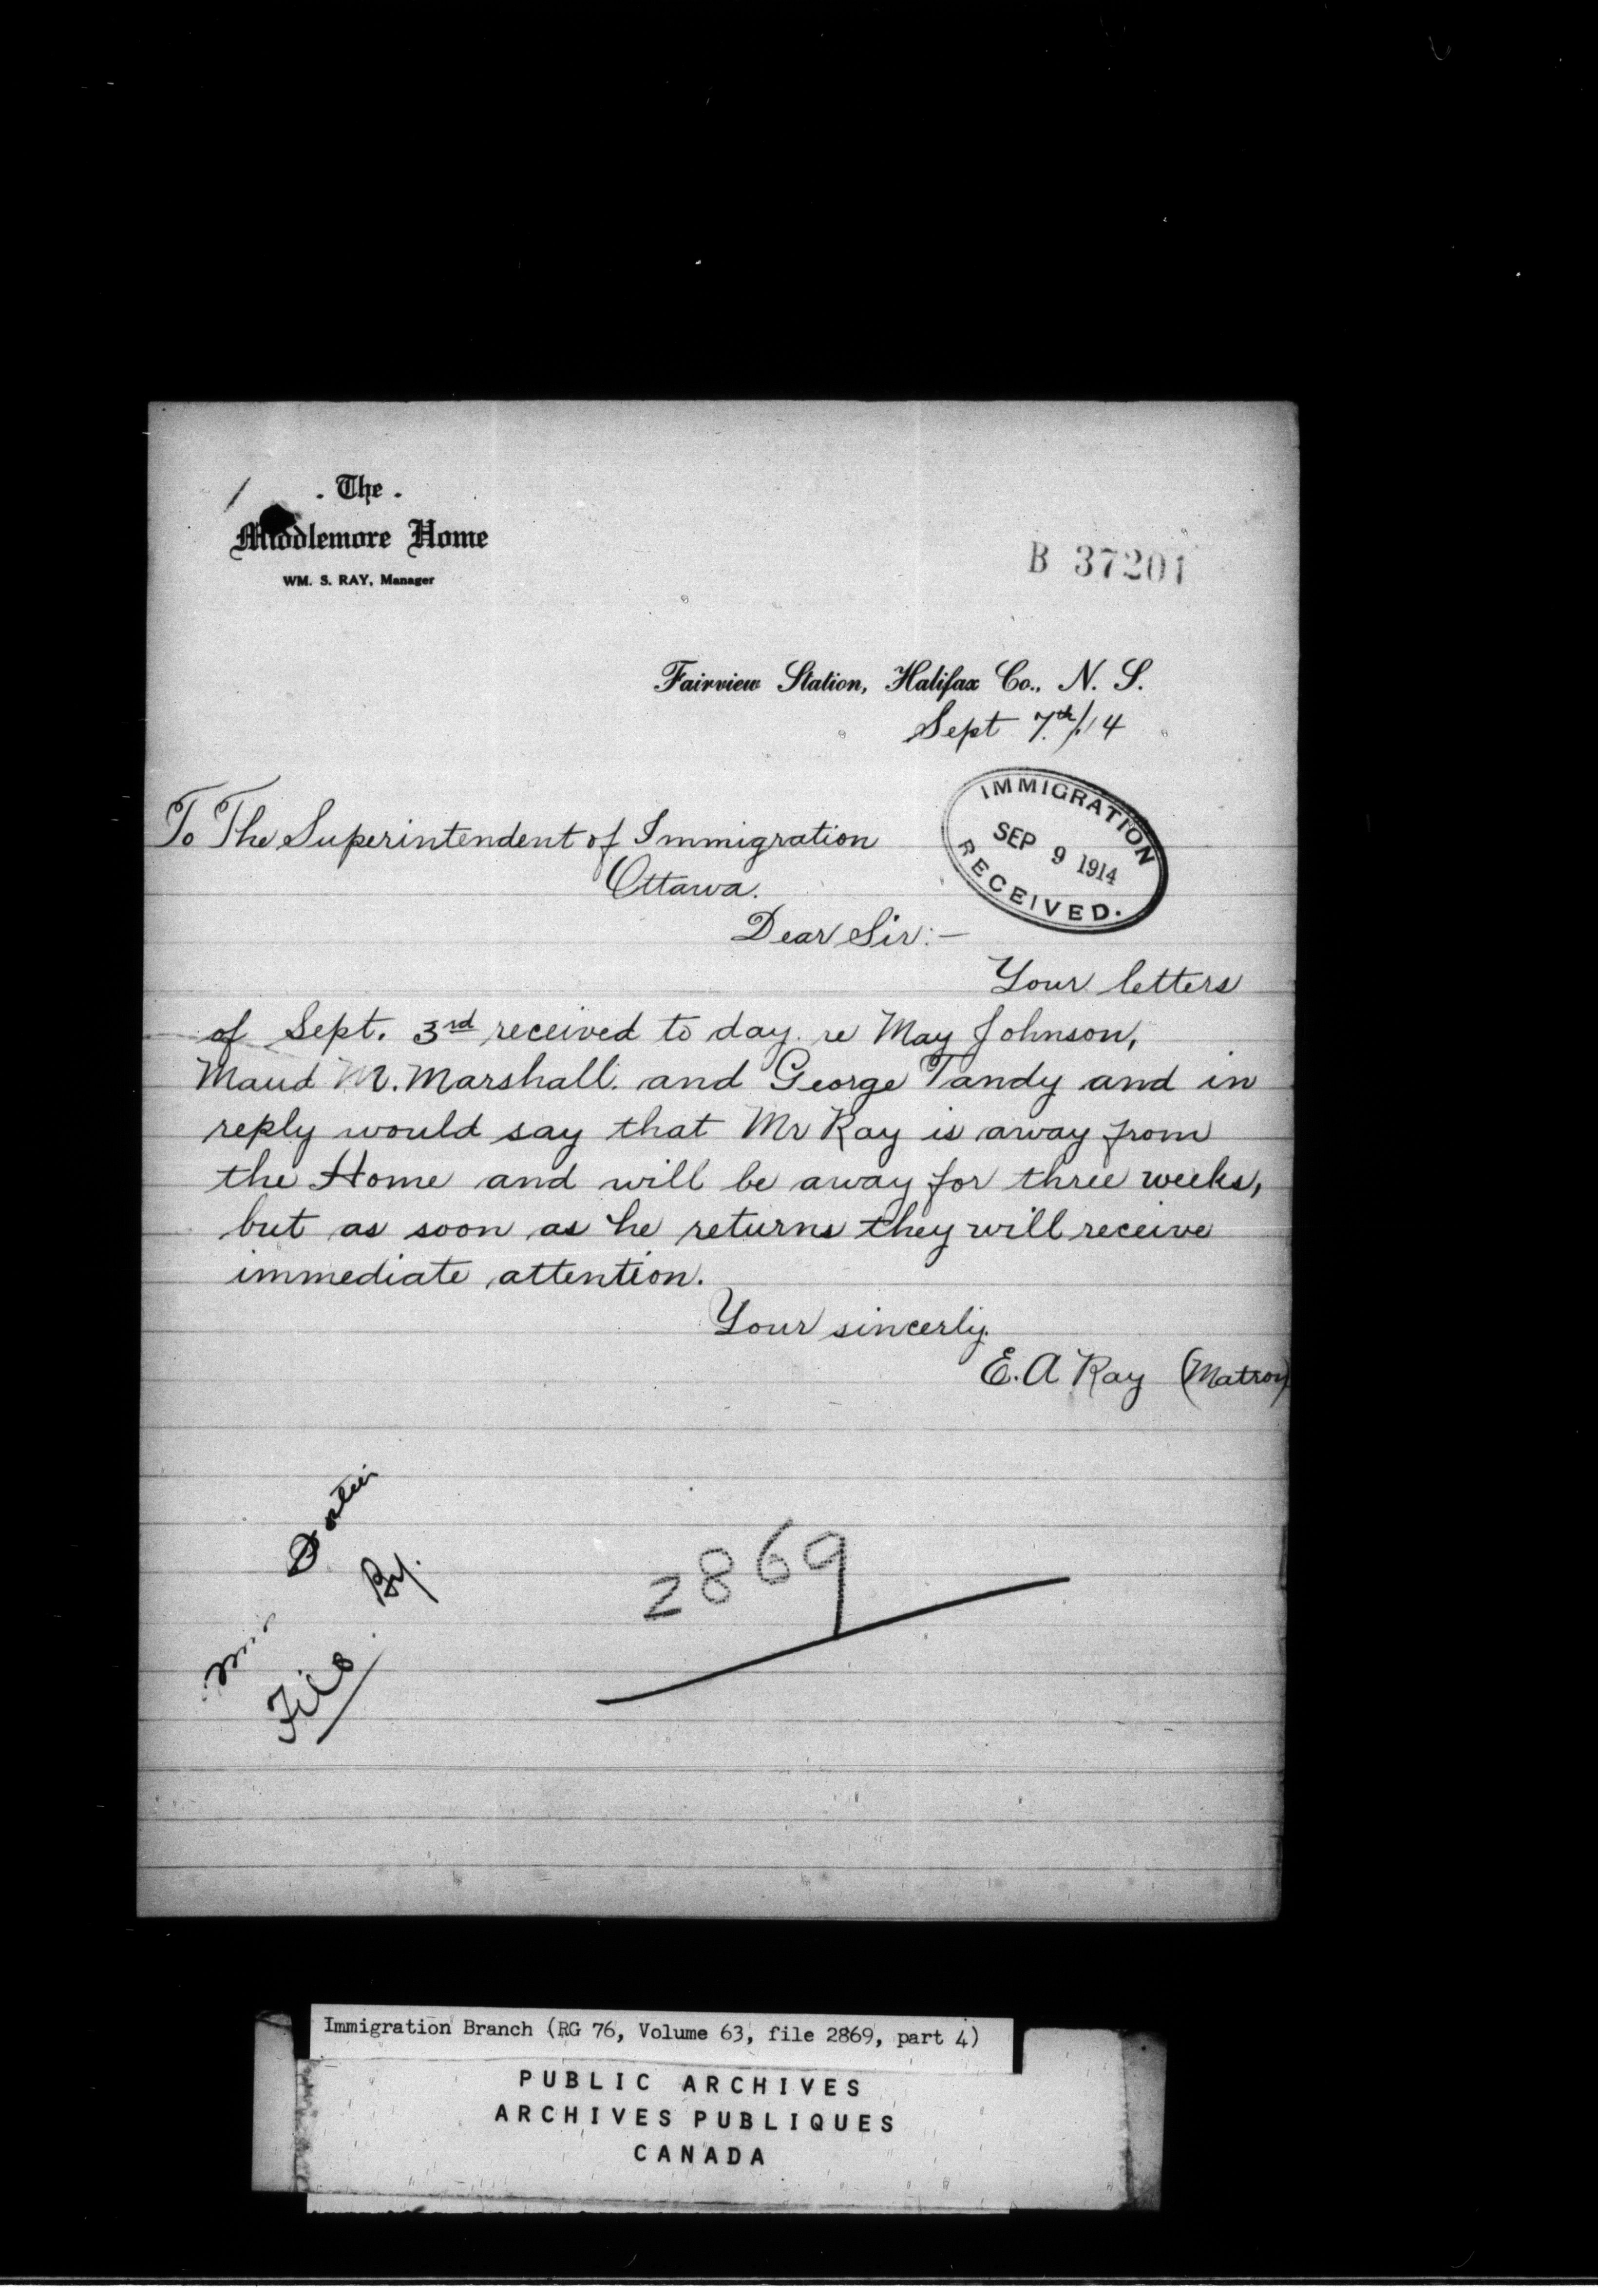 . The .
Middlemore Home
WM. S. RAY, Manager
B 37201
Fairview Station, Halifax Co., N. S.
Sept 7th/14
IMMIGRATION
SEP 9 1914
RECEIVED.
To The Superintendent of Immigration
Ottawa.
Dear Sir:—
Your letters
of Sept. 3rd received to day. re May Johnson,
Maud M. Marshall. and George Tandy and in
reply would say that Mr Ray is away from
the Home and will be away for three weeks,
but as soon as he returns they will receive
immediate attention.
Your sincerly.
E. A Ray (Matron)
File
2869
Immigration Branch (RG 76, Volume 63, file 2869, part 4)
PUBLIC ARCHIVES
ARCHIVES PUBLIQUES
CANADA